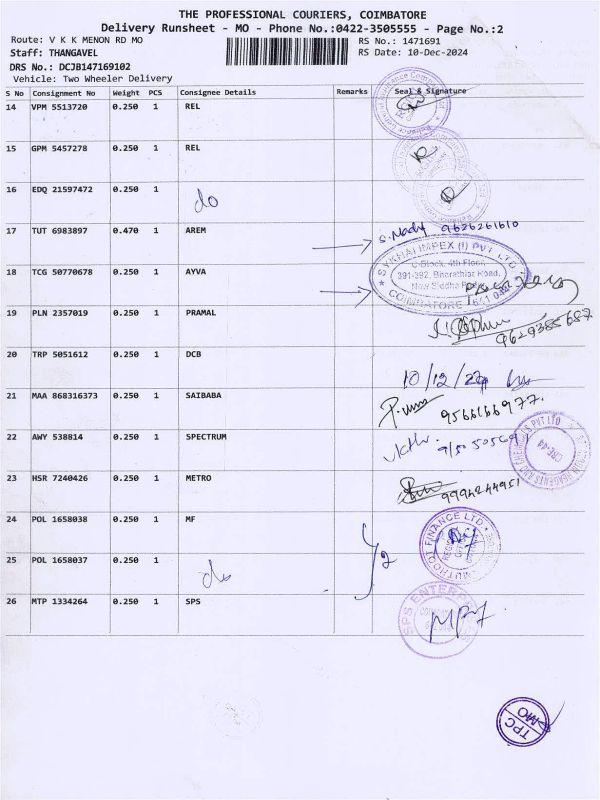 THE PROFESSIONAL COURIERS, COIMBATORE
Delivery Runsheet - MO - Phone No.:0422-3505555 - Page No.:2
Route: V K K MENON RD MO
RS No.: 1471691
Staff: THANGAVEL
RS Date: 10-Dec-2024
DRS No.: DCJB147169102
Vehicle: Two Wheeler Delivery
S No Consignment No Weight PCS Consignee Details Remarks Seal & Signature
14 VPM 5513720 0.250 1 REL
15 GPM 5457278 0.250 1 REL
16 EDQ 21597472 0.250 1 do
17 TUT 6983897 0.470 1 AREM
9626261610
SYKHAI IMPEX (I) PVT. LTD
C-Block, 4th Floor,
391-392, Bharathiar Road,
New Siddha
COIMBATORE
18 TCG 50770678 0.250 1 AYVA
19 PLN 2357019 0.250 1 PRAMAL
9629385687
20 TRP 5051612 0.250 1 DCB
10/12/24
21 MAA 868316373 0.250 1 SAIBABA
9566166977.
22 AWY 538814 0.250 1 SPECTRUM
CBE-44
23 HSR 7240426 0.250 1 METRO
9994244951
24 POL 1658038 0.250 1 MF
MUTHOOT FINANCE LTD
2
25 POL 1658037 0.250 1 do
26 MTP 1334264 0.250 1 SPS
SPS ENTERPRISES
TPC
MO